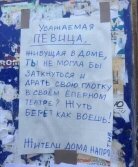 УВАЖАЕМАЯ
ПЕВИЦА,
ЖИВУЩАЯ В ДОМЕ,
ТЫ НЕ МОГЛА БЫ
ЗАТКНУТЬСЯ И
ДРАТЬ СВОЮ ГЛОТКУ
В СВОЁМ ЕПЕРНОМ
ТЕАТРЕ? ЖУТЬ
БЕРЁТ КАК ВОЕШЬ!
ЖИТЕЛИ ДОМА НАПР